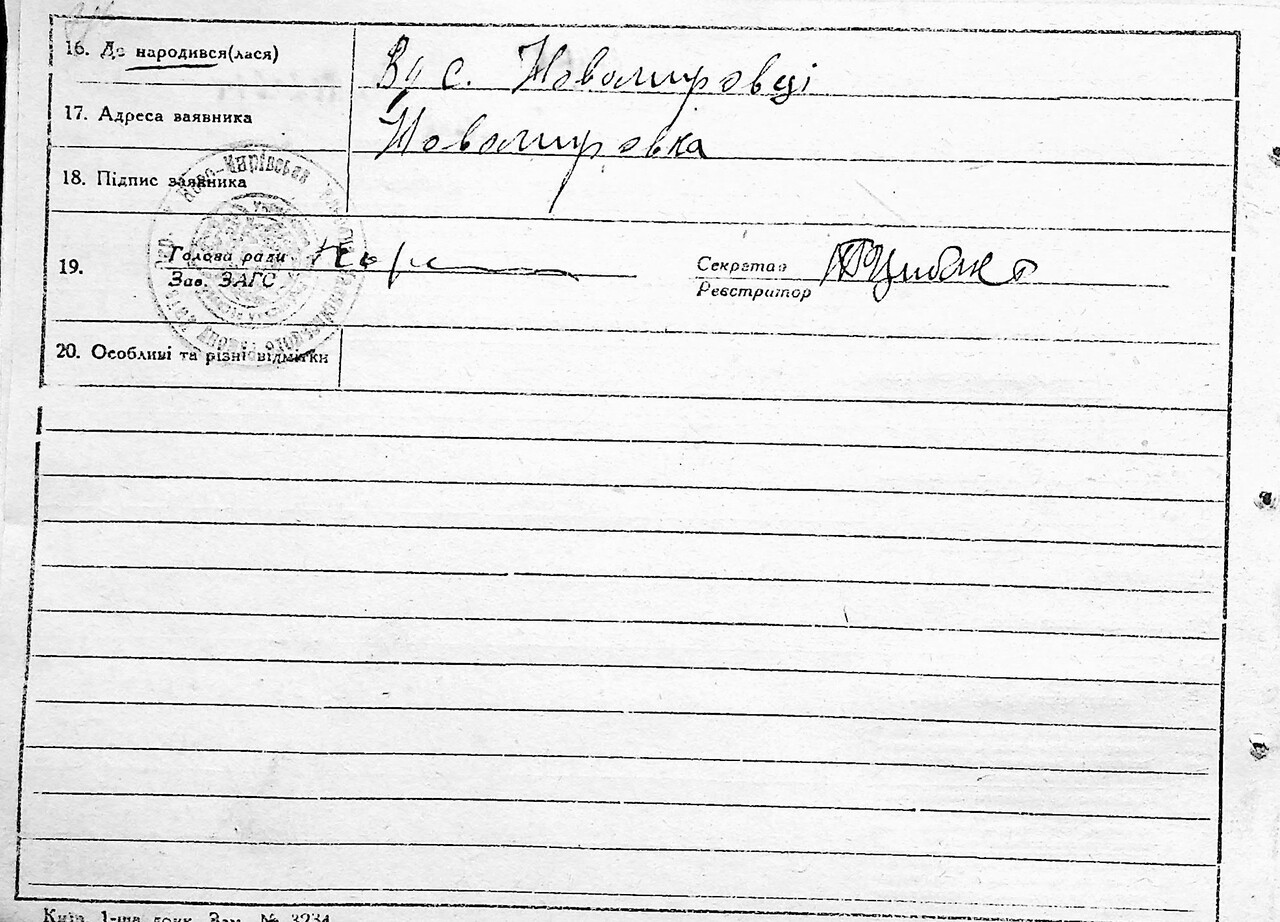 16. Де народився(лася)
В с. Новомировці
17. Адреса заявника
Новомировка
18. Підпис заявника
Ново-Карівська
19.
Голова ради
Зав. ЗАГС
Секретар
Реєстратор
району
20. Особливі та різні відмітки
Київ, 1-ша друк. Зам. № 3234